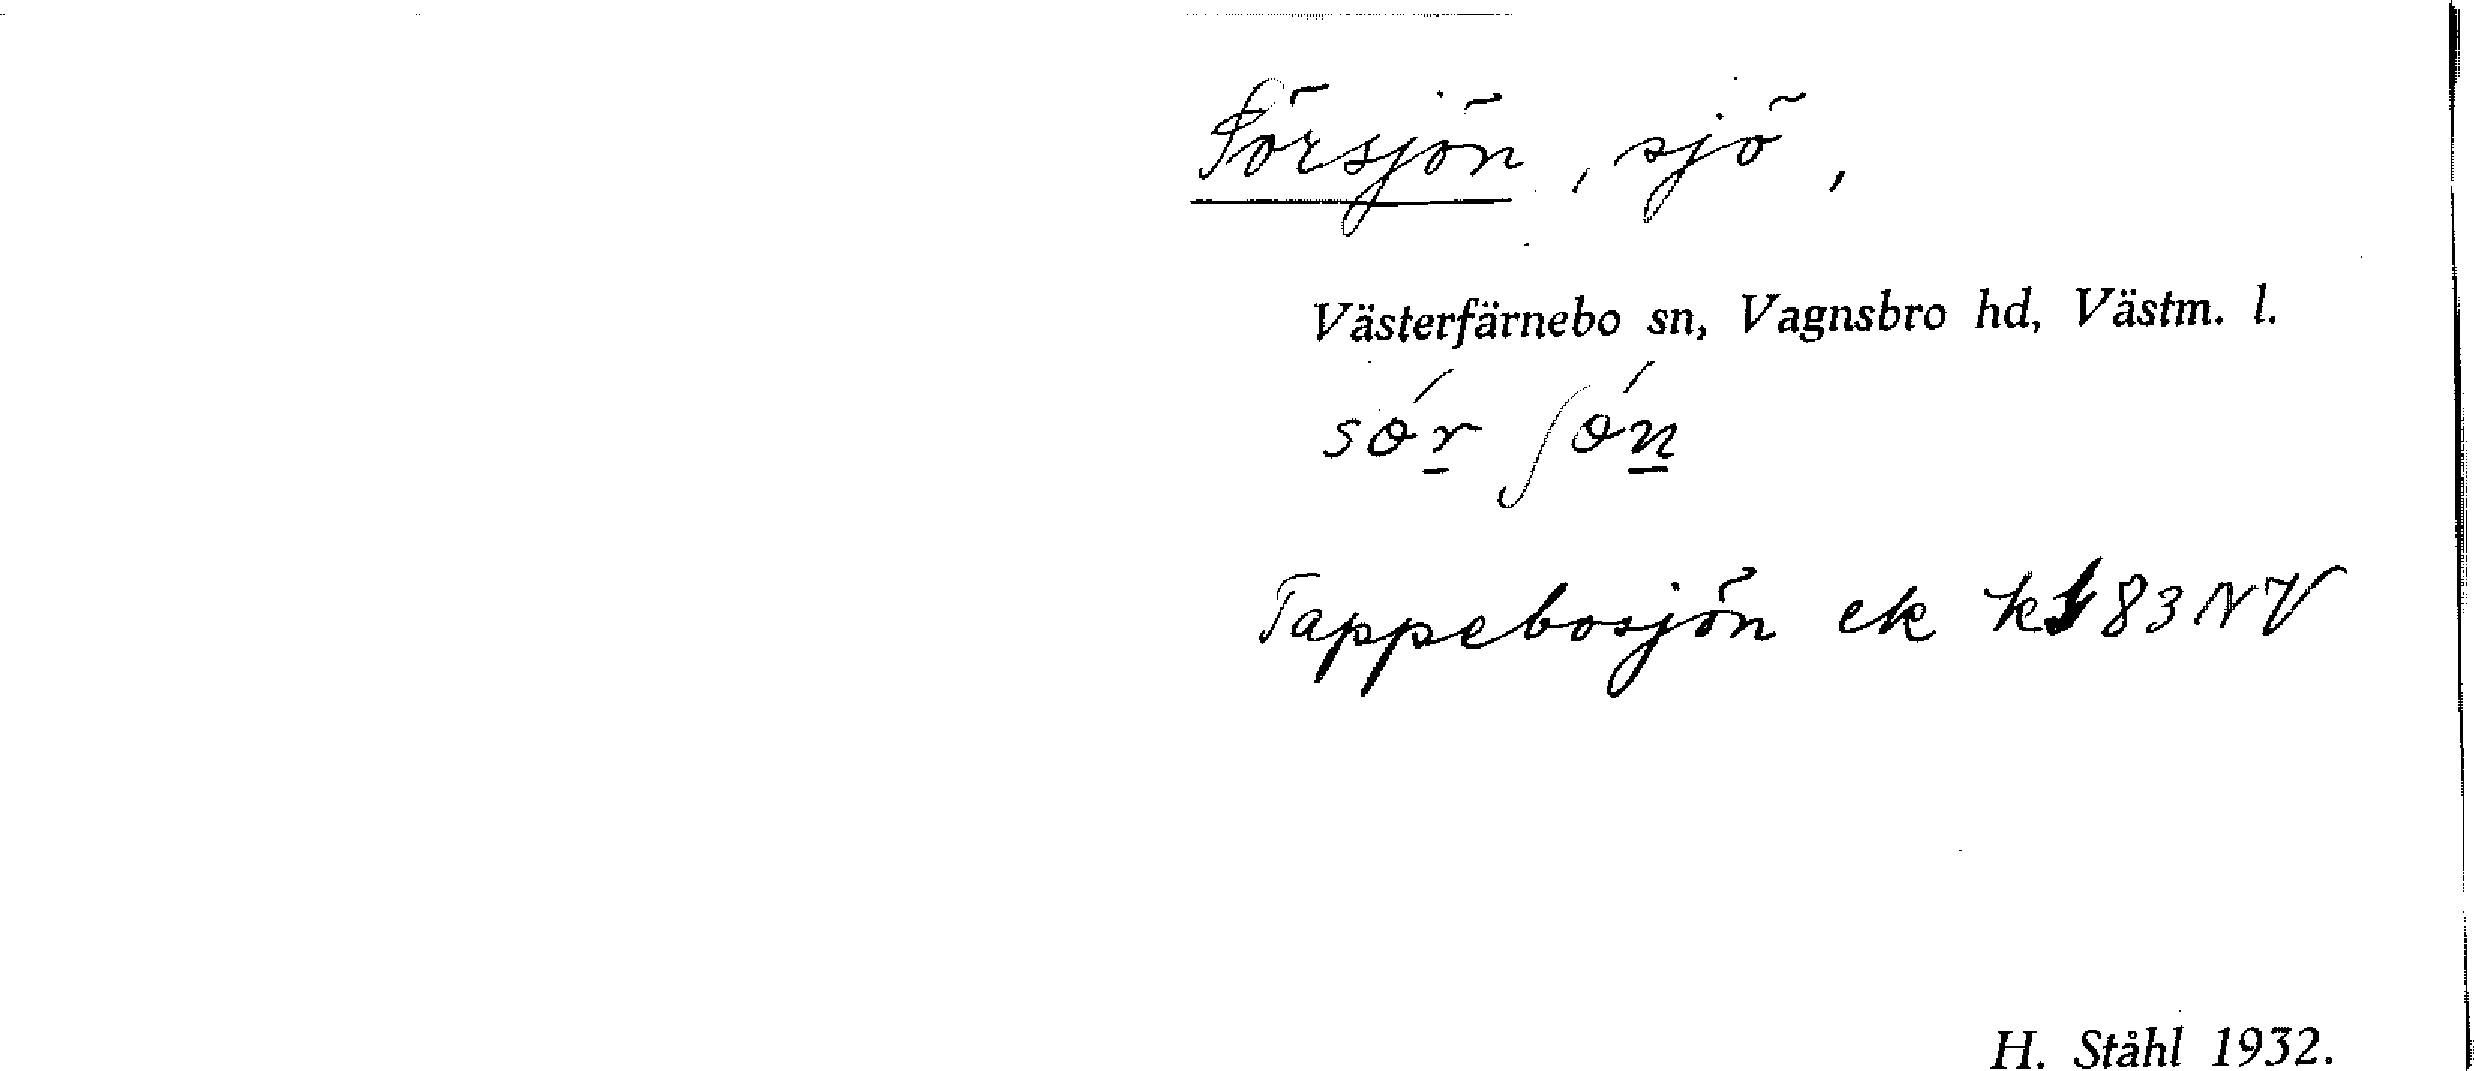 Sörsjön, sjö,
Västerfärnebo sn, Vagnsbro hd, Västm. l.
sǿr̲ ʃǿn̲
Tappebosjön ek kbl 83 NV
H. Ståhl 1932.